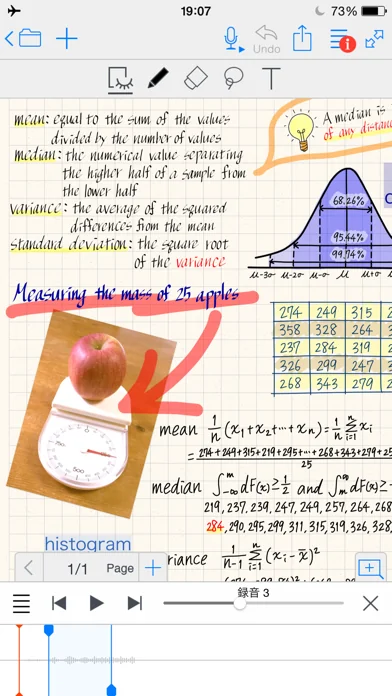 19:07
73%
Undo
T
mean: equal to the sum of the values
divided by the number of values
median: the numerical value separating
the higher half of a sample from
the lower half
variance: the average of the squared
differences from the mean
standard deviation: the square root
of the variance
A median is
of any distan
68.26%
95.44%
99.74%
μ-3σ μ-2σ μ-σ μ μ+σ
Measuring the mass of 25 apples
274 249 315 2
358 328 264 3
237 284 319
326 299 247
268 343 279 2
mean 1/n (x₁+x₂+⋯+xₙ)=1/n Σ xᵢ
i=1
n
= 274+249+315+219+295+⋯+268+343+279+25
25
median ∫ dF(x)≥1/2 and ∫ dF(x)≥
219,237,239,247,249,257,264,268
284,290,295,299,311,315,319,326,328,
histogram
riance 1/n-1 Σ (xᵢ-x̄)²
i=1
n
1/1 Page
録音 3